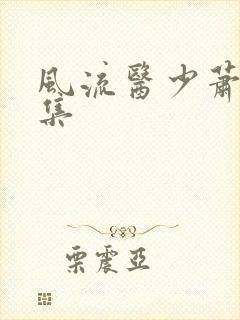 風流醫少蕭
集
栗震亞